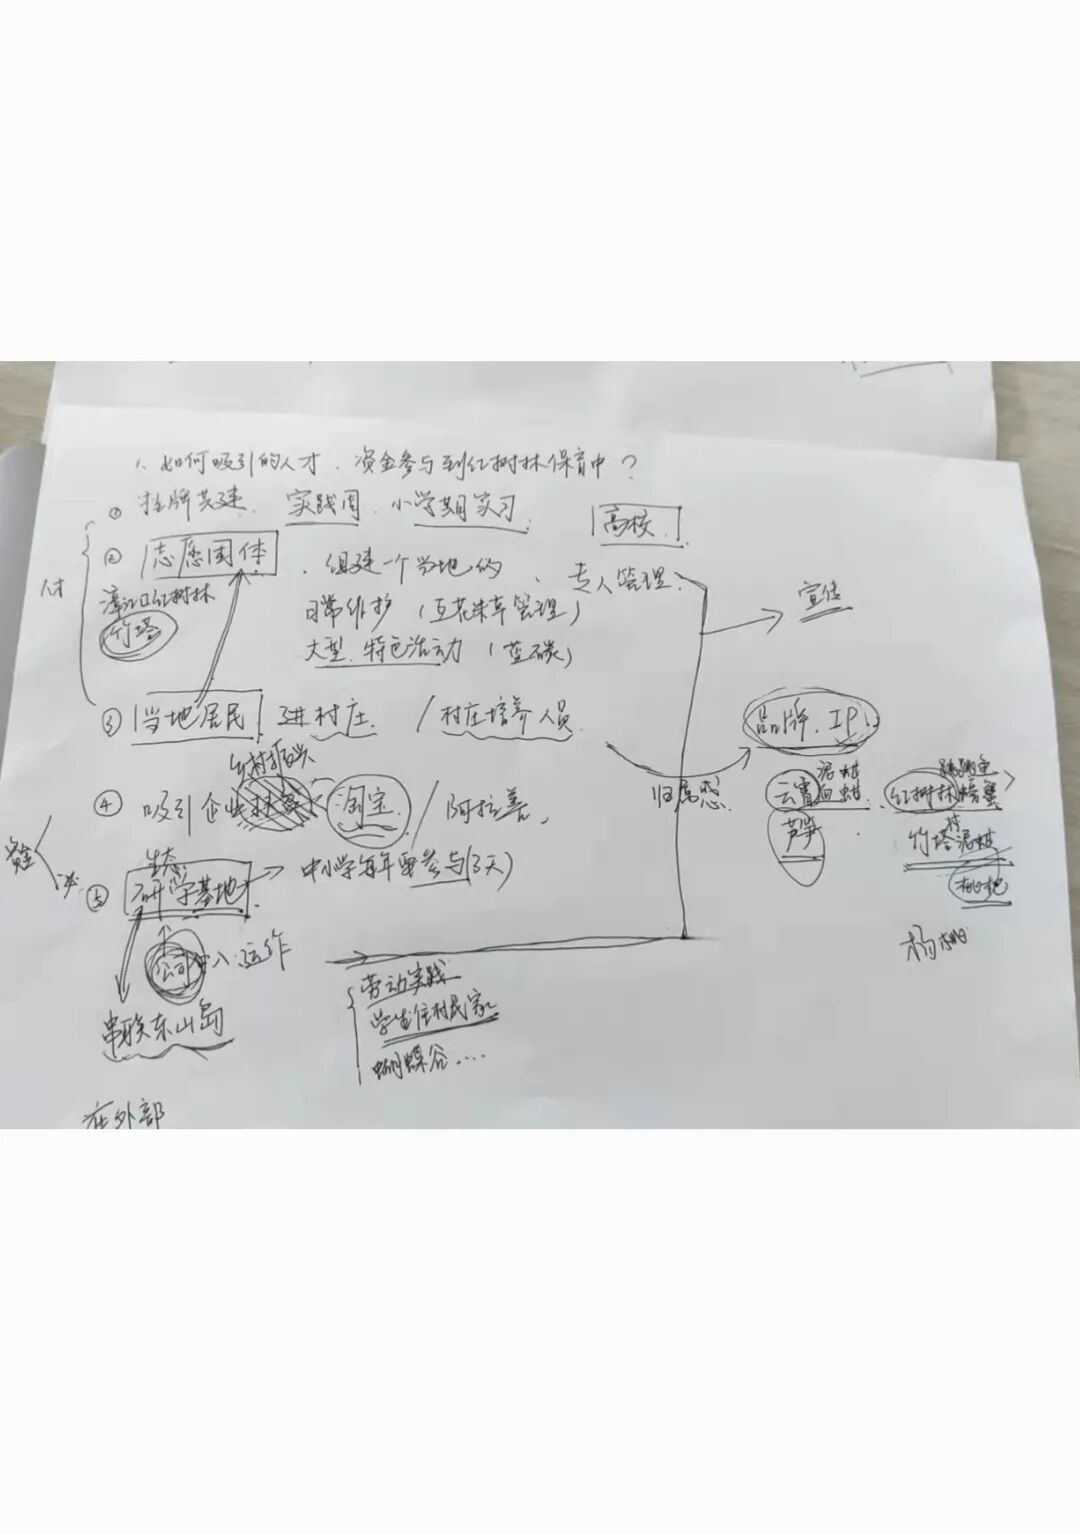 1、如何吸引的人才、资金参与到红树林保育中？
① 挂牌共建、实践周、小学期实习 高校
人才
② 志愿团体、组建一个当地的、专人管理
漳江口红树林 日常维护（互花米草管理）
竹塔 大型、特色活动（蓝碳）
宣传
③ 当地居民 进村庄 / 村庄培养人员
归属感
品牌、IP
云霄 泥蚶
芦笋
红树林 螃蟹
跳跳鱼
竹塔村 泥蚶
枇杷
杨梅
乡村振兴
④ 吸引企业 淘宝 / 阿拉善
资金
生态
⑤ 研学基地 → 中小学每年要参与(3天)
公司 入运作
串联东山岛
劳动实践
学生住村民家
蝴蝶谷....
在外部